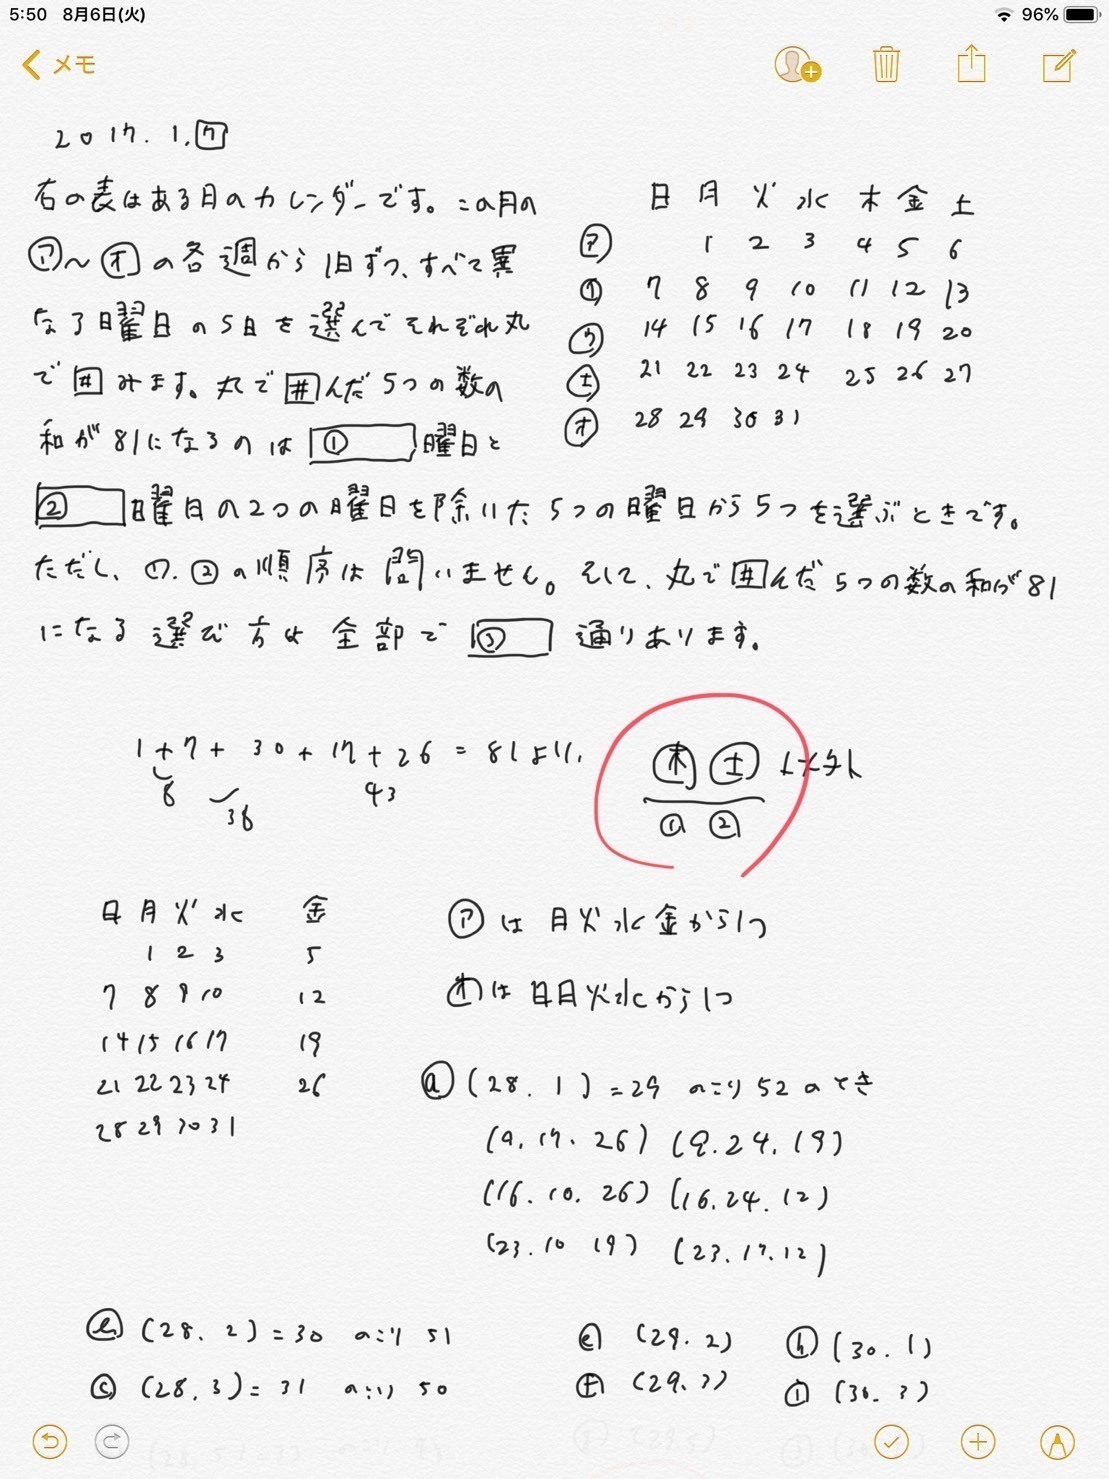 5:50 8月6日(火)
96%
メモ
2017.1.ウ
右の表はある月のカレンダーです。この月の
ア〜オの各週から1日ずつ、すべて異
なる曜日の5日を選んでそれぞれ丸
で囲みます。丸で囲んだ5つの数の
和が81になるのは ① 曜日と
② 曜日の2つの曜日を除いた5つの曜日から5つを選ぶときです。
ただし、①.②の順序は問いません。そして、丸で囲んだ5つの数の和が81
になる選び方は全部で ③ 通りあります。
日 月 火 水 木 金 土
ア 1 2 3 4 5 6
イ 7 8 9 10 11 12 13
ウ 14 15 16 17 18 19 20
エ 21 22 23 24 25 26 27
オ 28 29 30 31
1+7+30+17+26=81より、
8 43
38
木 土 以外
① ②
日 月 火 水 金
1 2 3 5
7 8 9 10 12
14 15 16 17 19
21 22 23 24 26
28 29 30 31
アは月火水金から1つ
オは日月火水から1つ
a (28.1)=29 のこり52のとき
(9.17.26) (9.24.19)
(16.10.26) (16.24.12)
(23.10 19) (23.17.12)
b (28.2)=30 のこり51
c (28.3)=31 のこり50
e (29.2)
f (29.3)
h (30.1)
i (30.3)